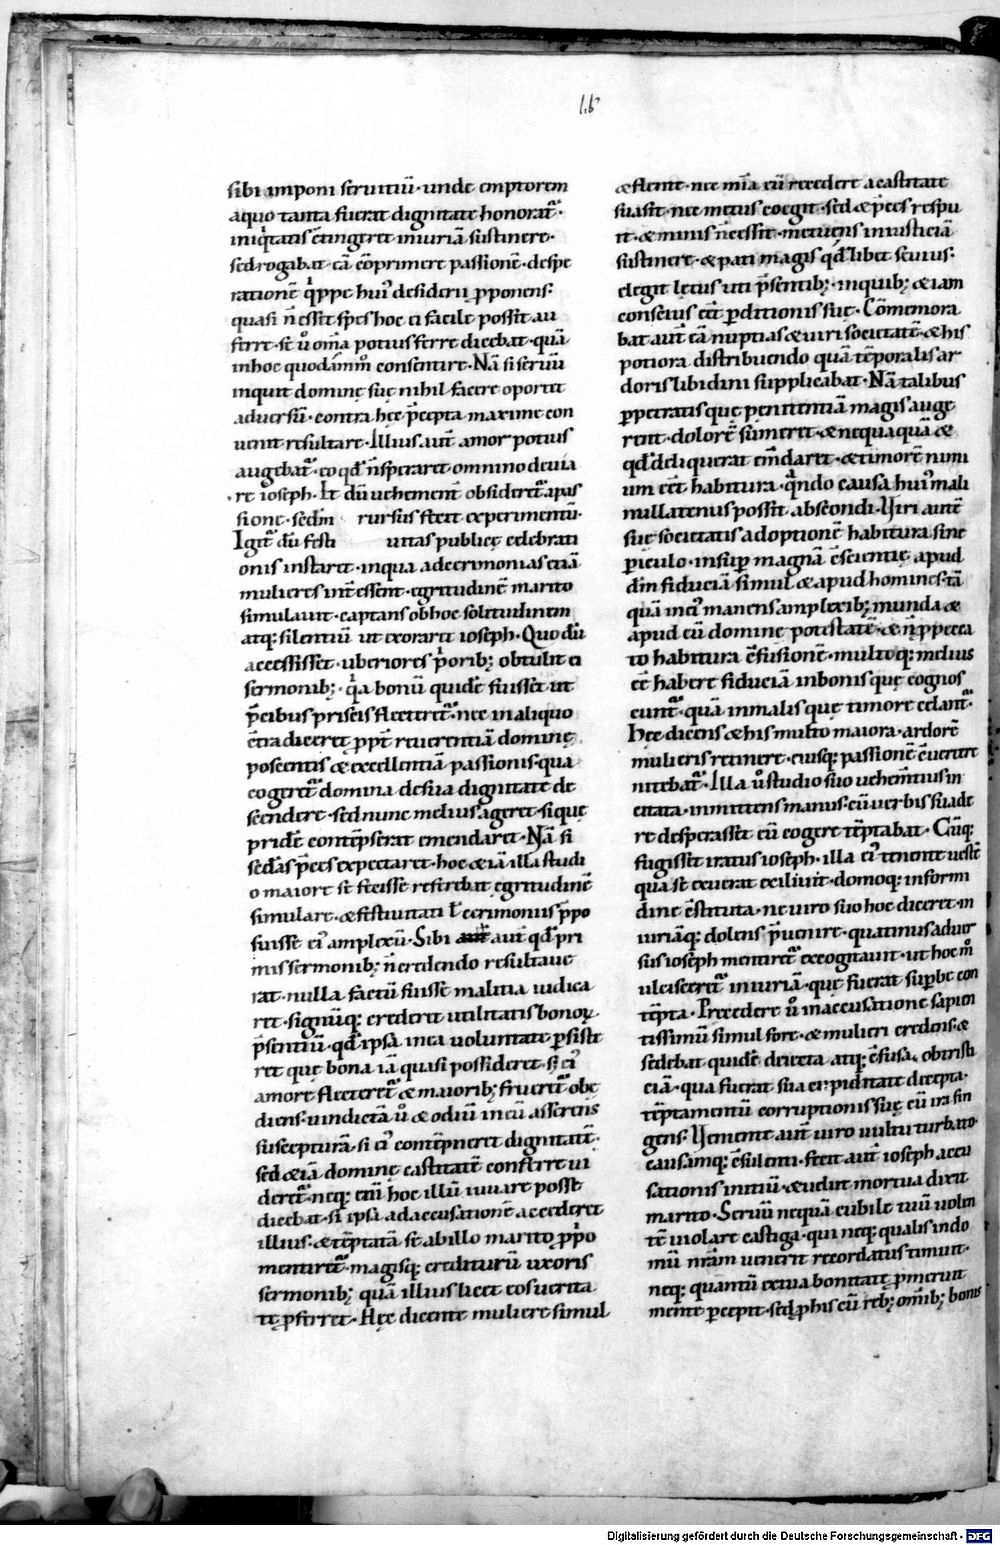 l.b
sibi imponi seruitiū · unde emptorem
a quo tanta fuerat dignitate honorat᷑ ·
iniq̇tatis c̄tingeret iniuriā sustinere ·
sed rogabat eā cōprimere passionē · despe
rationē q̇ppe hui᷒ desiderii ꝓponens ·
quasi n̄ esset spes hoc ei facile posset au
ferre · se u̇ om̄ia potius ferre dicebat · quā
in hoc quodāmō consentire · Nā si seruū
inquit dominę suę nihil facere oportet
aduersū · contra hęc p̄cepta maxime con
uenit resultare · Illius aut̄ amor potius
augebat᷑ · eo qd̄ n̄ speraret omnino deuia
re ioseph · Et dū uehement̄ obsideret᷑ a pas
sione · sed in rursus stetit experimentū ·
Igit᷑ dū festi uitas publicę celebrati
onis instaret · in qua ad cerimonias etiā
mulieres int̄essent · egritudinē marito
simulauit · captans ob hoc solitudinem
atq; silentiū ut exoraret ioseph · Quo dū
accessisset · uberiores p̄orib; obtulit ei
sermonib; · q̇a bonū quidē fuisset ut
p̄cibus priscis flecteret᷑ · nec in aliquo
c̄tradiceret ꝓpt̄ reuerentiā dominę
poscentis & excellentiā passionis · qua
cogeret᷑ domina de sua dignitate de
scendere · sed nunc melius ageret · si quę
pridē contēpserat emendaret · Nā si
sedās p̄ces expectaret · hoc & iā illa studi
o maiore se fecisse referebat egritudinē
simulare · & festiuitati ł cerimoniis p̄po
suisse ei᷒ amplexū · Sibi aut̄ aut̄ qd̄ pri
mis sermonib; n̄ credendo resultaue
rat · nulla factū fuisse malitia iudica
ret · signūq; crederet utilitatis bonoꝝ
p̄sentiū · qd̄ ipsa in ea uoluntate ꝑsiste
ret quę bona iā quasi possideret · si ei᷒
amore flecteret᷑ & maiorib; frueret᷑ obę
diens · uindictā u̇ & odiū in eū asserens
susceptura · si ei᷒ contēpneret dignitatē ·
sed & iā dominę castitatē conferre ui
deret᷑ · neq; enī hoc illū iuuare posse
dicebat · si ipsa ad accusationē accederet
illius · & tēptatā se ab illo marito ꝓprio
mentiret᷑ · magisq; crediturū uxoris
sermonib; quā illius licet eos uerita
te ꝓferret · Hęc dicente muliere simul
& flente · nec mīa eū recedere a castitate
suasit · nec metus coegit · sed & p̄ces respu
it · & minis n̄ cessit · metuens iniusticiā
sustinere · & pati magis qd̄libet seuius ·
elegit lętus uti p̄sentib; · in quib; & iam
conscius eēt ꝑditionis suę · Cōmemora
bat aut̄ eā nuptias & uiri societatē · & his
potiora distribuendo quā tēporalis ar
doris libidini supplicabat · Nā talibus
ꝑpetratis quę penitentiā magis auge
rent · dolorē sumeret · & nequaquā &
qd̄ deliquerat em̄daret · & timorē nimi
um eēt habitura · q̇ndo causa hui᷒ mali
nullatenus posset abscondi · Uiri autē
suę societatis adoptionē habitura sine
ꝑiculo · insuꝑ magnā c̄scientię apud
dm̄ fiduciā simul & apud homines · tā
quā in ei᷒ manens amplexib; munda &
apud eū dominę potestatē · & n̄ ꝓ pecca
to habitura c̄fusionē · multoq; melius
eē habere fiduciā in bonis quę cognos
cunt᷑ · quā in malis quę timore celant᷑ ·
Hęc dicens & his multo maiora · ardorē
mulieris retinere · eiusq; passionē c̄uertere
nitebat᷑ · Illa u̇ studio suo uehem̄tius in
citata · inmittens manus · eū uerbis suade
re desperasset eū cogere tēptabat · Cūq;
fugisset iratus ioseph · illa ei᷒ tenente uestē
qua se exuerat exiliuit · domoq; informi
dine c̄stituta · ne uiro suo hoc diceret in
iuriāq; dolens p̄uenire · quatinus aduer
sus ioseph mentiret᷑ excogitauit · ut hoc mō
ulcisceret᷑ iniuriā · quę fuerat suꝑbe con
tēpta · Precedere u̇ in accusatione sapien
tissimū simul fore · & mulieri credens · &
sedebat quidē deiecta atq; c̄fusa · ob tristi
ciā · qua fuerat sua cupiditate decepta ·
tēptamentū corruptionis suę eū ira fin
gens · Ueniente aut̄ uiro uultu turbato ·
causamq; c̄sulenti · stetit aut̄ ioseph accu
sationis initiū · & uelut mortua dixit
marito · Seruū nequā cubile tuū uolen
tē uiolare castiga · qui neq; qualis in do
mū nr̄am uenerit recordatus timuit ·
neq; quantū ex tua bonitate ꝓmeruit
mente ꝑcepit · sed ꝓ his cū reb; om̄ib; bonis
Digitalisierung gefördert durch die Deutsche Forschungsgemeinschaft - DFG